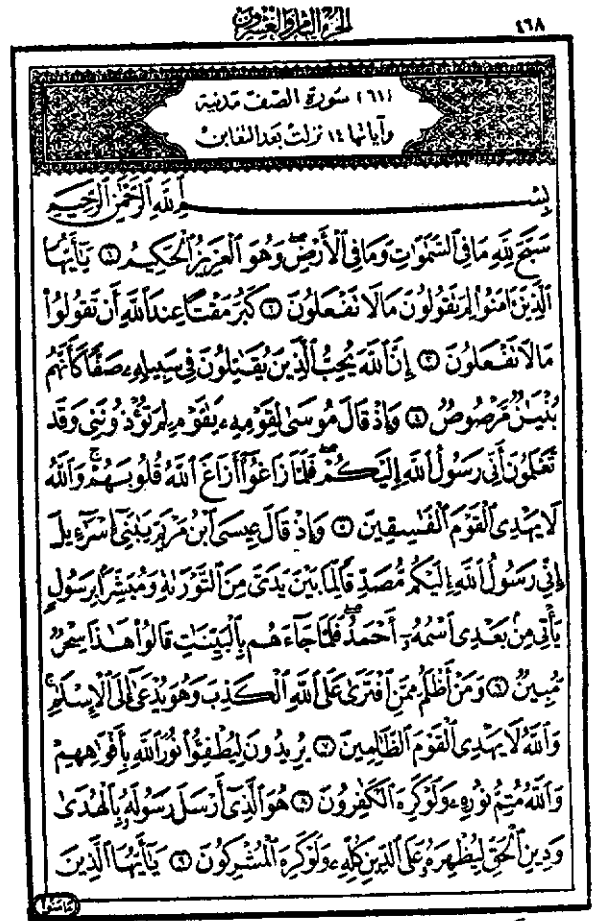 الجزء الثامن والعشرون
٤٦٨
(٦١) سورة الصف مدنية
وآياتها ١٤ نزلت بعد التغابن
بِسْمِ ٱللَّهِ ٱلرَّحْمَٰنِ ٱلرَّحِيمِ
سَبَّحَ لِلَّهِ مَا فِى ٱلسَّمَٰوَٰتِ وَمَا فِى ٱلْأَرْضِ ۖ وَهُوَ ٱلْعَزِيزُ ٱلْحَكِيمُ ١ يَٰٓأَيُّهَا
ٱلَّذِينَ ءَامَنُوا۟ لِمَ تَقُولُونَ مَا لَا تَفْعَلُونَ ٢ كَبُرَ مَقْتًا عِندَ ٱللَّهِ أَن تَقُولُوا۟
مَا لَا تَفْعَلُونَ ٣ إِنَّ ٱللَّهَ يُحِبُّ ٱلَّذِينَ يُقَٰتِلُونَ فِى سَبِيلِهِۦ صَفًّا كَأَنَّهُم
بُنْيَٰنٌ مَّرْصُوصٌ ٤ وَإِذْ قَالَ مُوسَىٰ لِقَوْمِهِۦ يَٰقَوْمِ لِمَ تُؤْذُونَنِى وَقَد
تَّعْلَمُونَ أَنِّى رَسُولُ ٱللَّهِ إِلَيْكُمْ ۖ فَلَمَّا زَاغُوٓا۟ أَزَاغَ ٱللَّهُ قُلُوبَهُمْ ۚ وَٱللَّهُ
لَا يَهْدِى ٱلْقَوْمَ ٱلْفَٰسِقِينَ ٥ وَإِذْ قَالَ عِيسَى ٱبْنُ مَرْيَمَ يَٰبَنِىٓ إِسْرَٰٓءِيلَ
إِنِّى رَسُولُ ٱللَّهِ إِلَيْكُم مُّصَدِّقًا لِّمَا بَيْنَ يَدَىَّ مِنَ ٱلتَّوْرَىٰةِ وَمُبَشِّرًۢا بِرَسُولٍ
يَأْتِى مِنۢ بَعْدِى ٱسْمُهُۥٓ أَحْمَدُ ۖ فَلَمَّا جَآءَهُم بِٱلْبَيِّنَٰتِ قَالُوا۟ هَٰذَا سِحْرٌ
مُّبِينٌ ٦ وَمَنْ أَظْلَمُ مِمَّنِ ٱفْتَرَىٰ عَلَى ٱللَّهِ ٱلْكَذِبَ وَهُوَ يُدْعَىٰٓ إِلَى ٱلْإِسْلَٰمِ ۚ
وَٱللَّهُ لَا يَهْدِى ٱلْقَوْمَ ٱلظَّٰلِمِينَ ٧ يُرِيدُونَ لِيُطْفِـُٔوا۟ نُورَ ٱللَّهِ بِأَفْوَٰهِهِمْ
وَٱللَّهُ مُتِمُّ نُورِهِۦ وَلَوْ كَرِهَ ٱلْكَٰفِرُونَ ٨ هُوَ ٱلَّذِىٓ أَرْسَلَ رَسُولَهُۥ بِٱلْهُدَىٰ
وَدِينِ ٱلْحَقِّ لِيُظْهِرَهُۥ عَلَى ٱلدِّينِ كُلِّهِۦ وَلَوْ كَرِهَ ٱلْمُشْرِكُونَ ٩ يَٰٓأَيُّهَا ٱلَّذِينَ
ءَامَنُوا۟